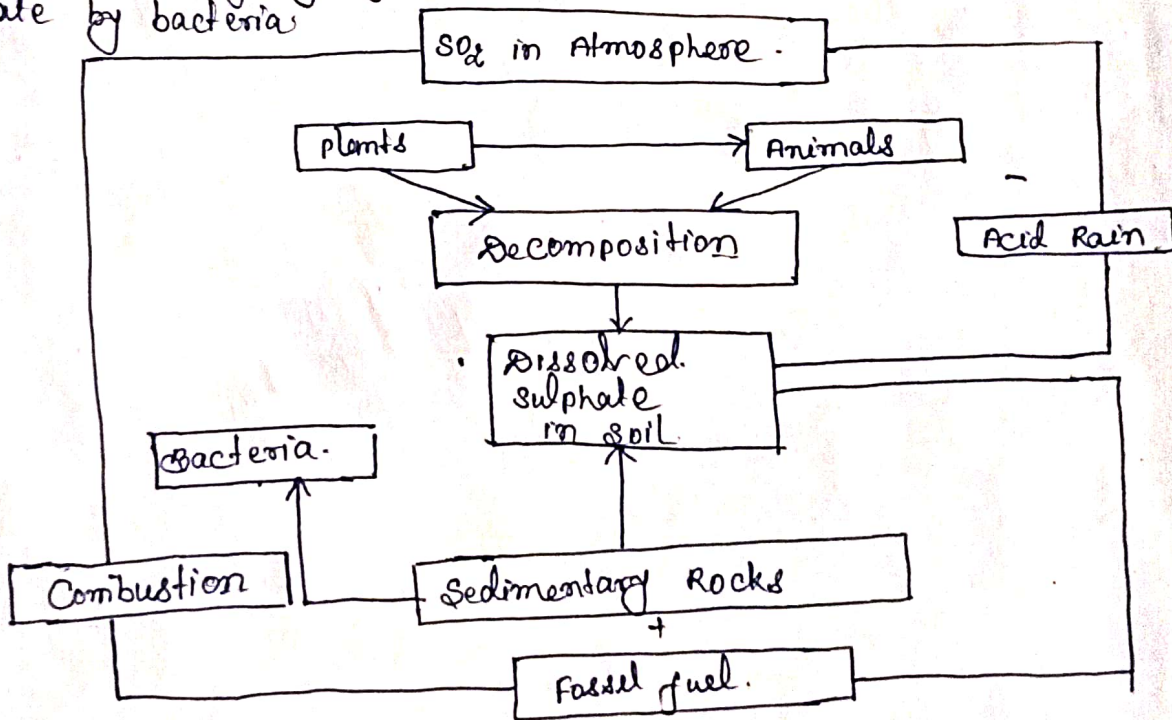 by bacteria
SO2 in Atmosphere.
Plants
Animals
Decomposition
Acid Rain
Dissolved
sulphate
in soil.
Bacteria.
Combustion
Sedimentary Rocks
+
Fossel fuel.